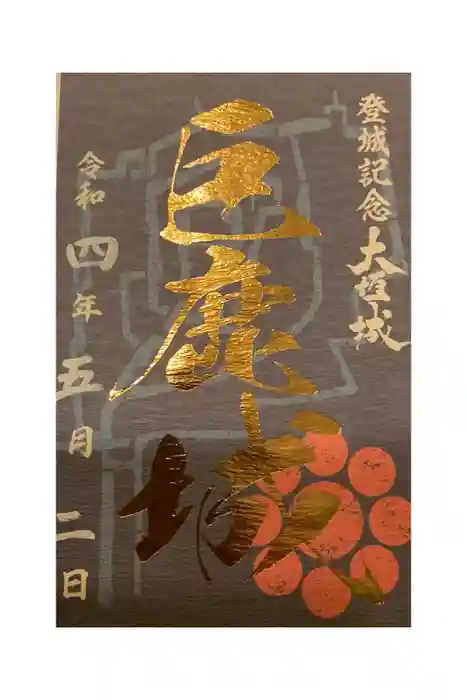 登城記念 大垣城
巨鹿城
令和四年五月二日